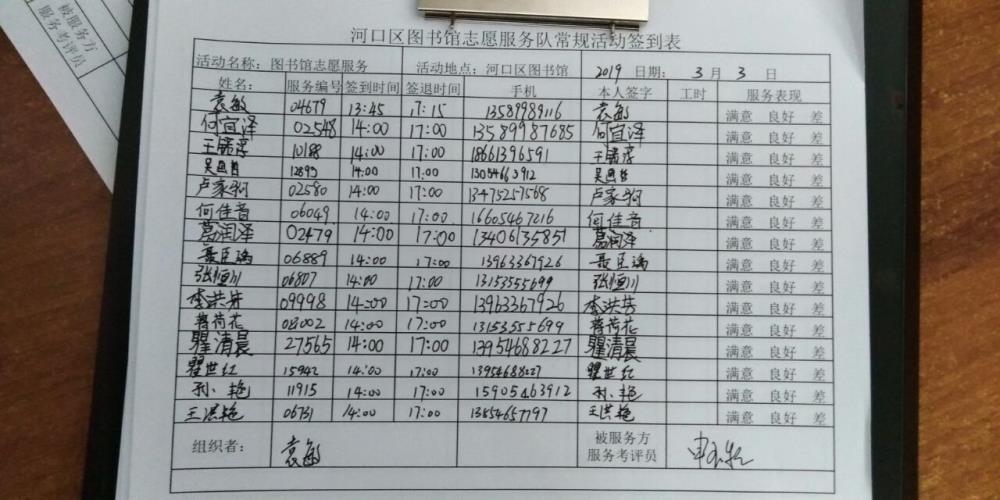 被服务方
服务考评员
河口区图书馆志愿服务队常规活动签到表
活动名称: 图书馆志愿服务 活动地点: 河口区图书馆 2019 日期: 3 月 3 日
姓名: 服务编号 签到时间 签退时间 手机 本人签字 工时 服务表现
袁敏 04679 13:45 17:15 13589989116 袁敏 满意 良好 差
何宜泽 02548 14:00 17:00 13589987685 何宜泽 满意 良好 差
10188 14:00 17:00 18661396591 满意 良好 差
14:00 17:00 满意 良好 差
02580 14:00 17:00 13475257568 满意 良好 差
何佳音 06049 14:00 17:00 16605467216 何佳音 满意 良好 差
葛润泽 02479 14:00 17:00 13406135851 葛润泽 满意 良好 差
聂臣瑞 06889 14:00 17:00 13963367926 聂臣瑞 满意 良好 差
张恒川 06807 14:00 17:00 13153555699 张恒川 满意 良好 差
李洪芳 09998 14:00 17:00 13963367926 李洪芳 满意 良好 差
蒋荷花 08002 14:00 17:00 13153555699 蒋荷花 满意 良好 差
瞿清晨 27565 14:00 17:00 13954688227 瞿清晨 满意 良好 差
翟世红 15942 14:00 17:00 13954688227 翟世红 满意 良好 差
孙艳 11915 14:00 17:00 15905463912 孙艳 满意 良好 差
王洪艳 06731 14:00 17:00 13854657797 王洪艳 满意 良好 差
组织者: 袁敏 被服务方
服务考评员